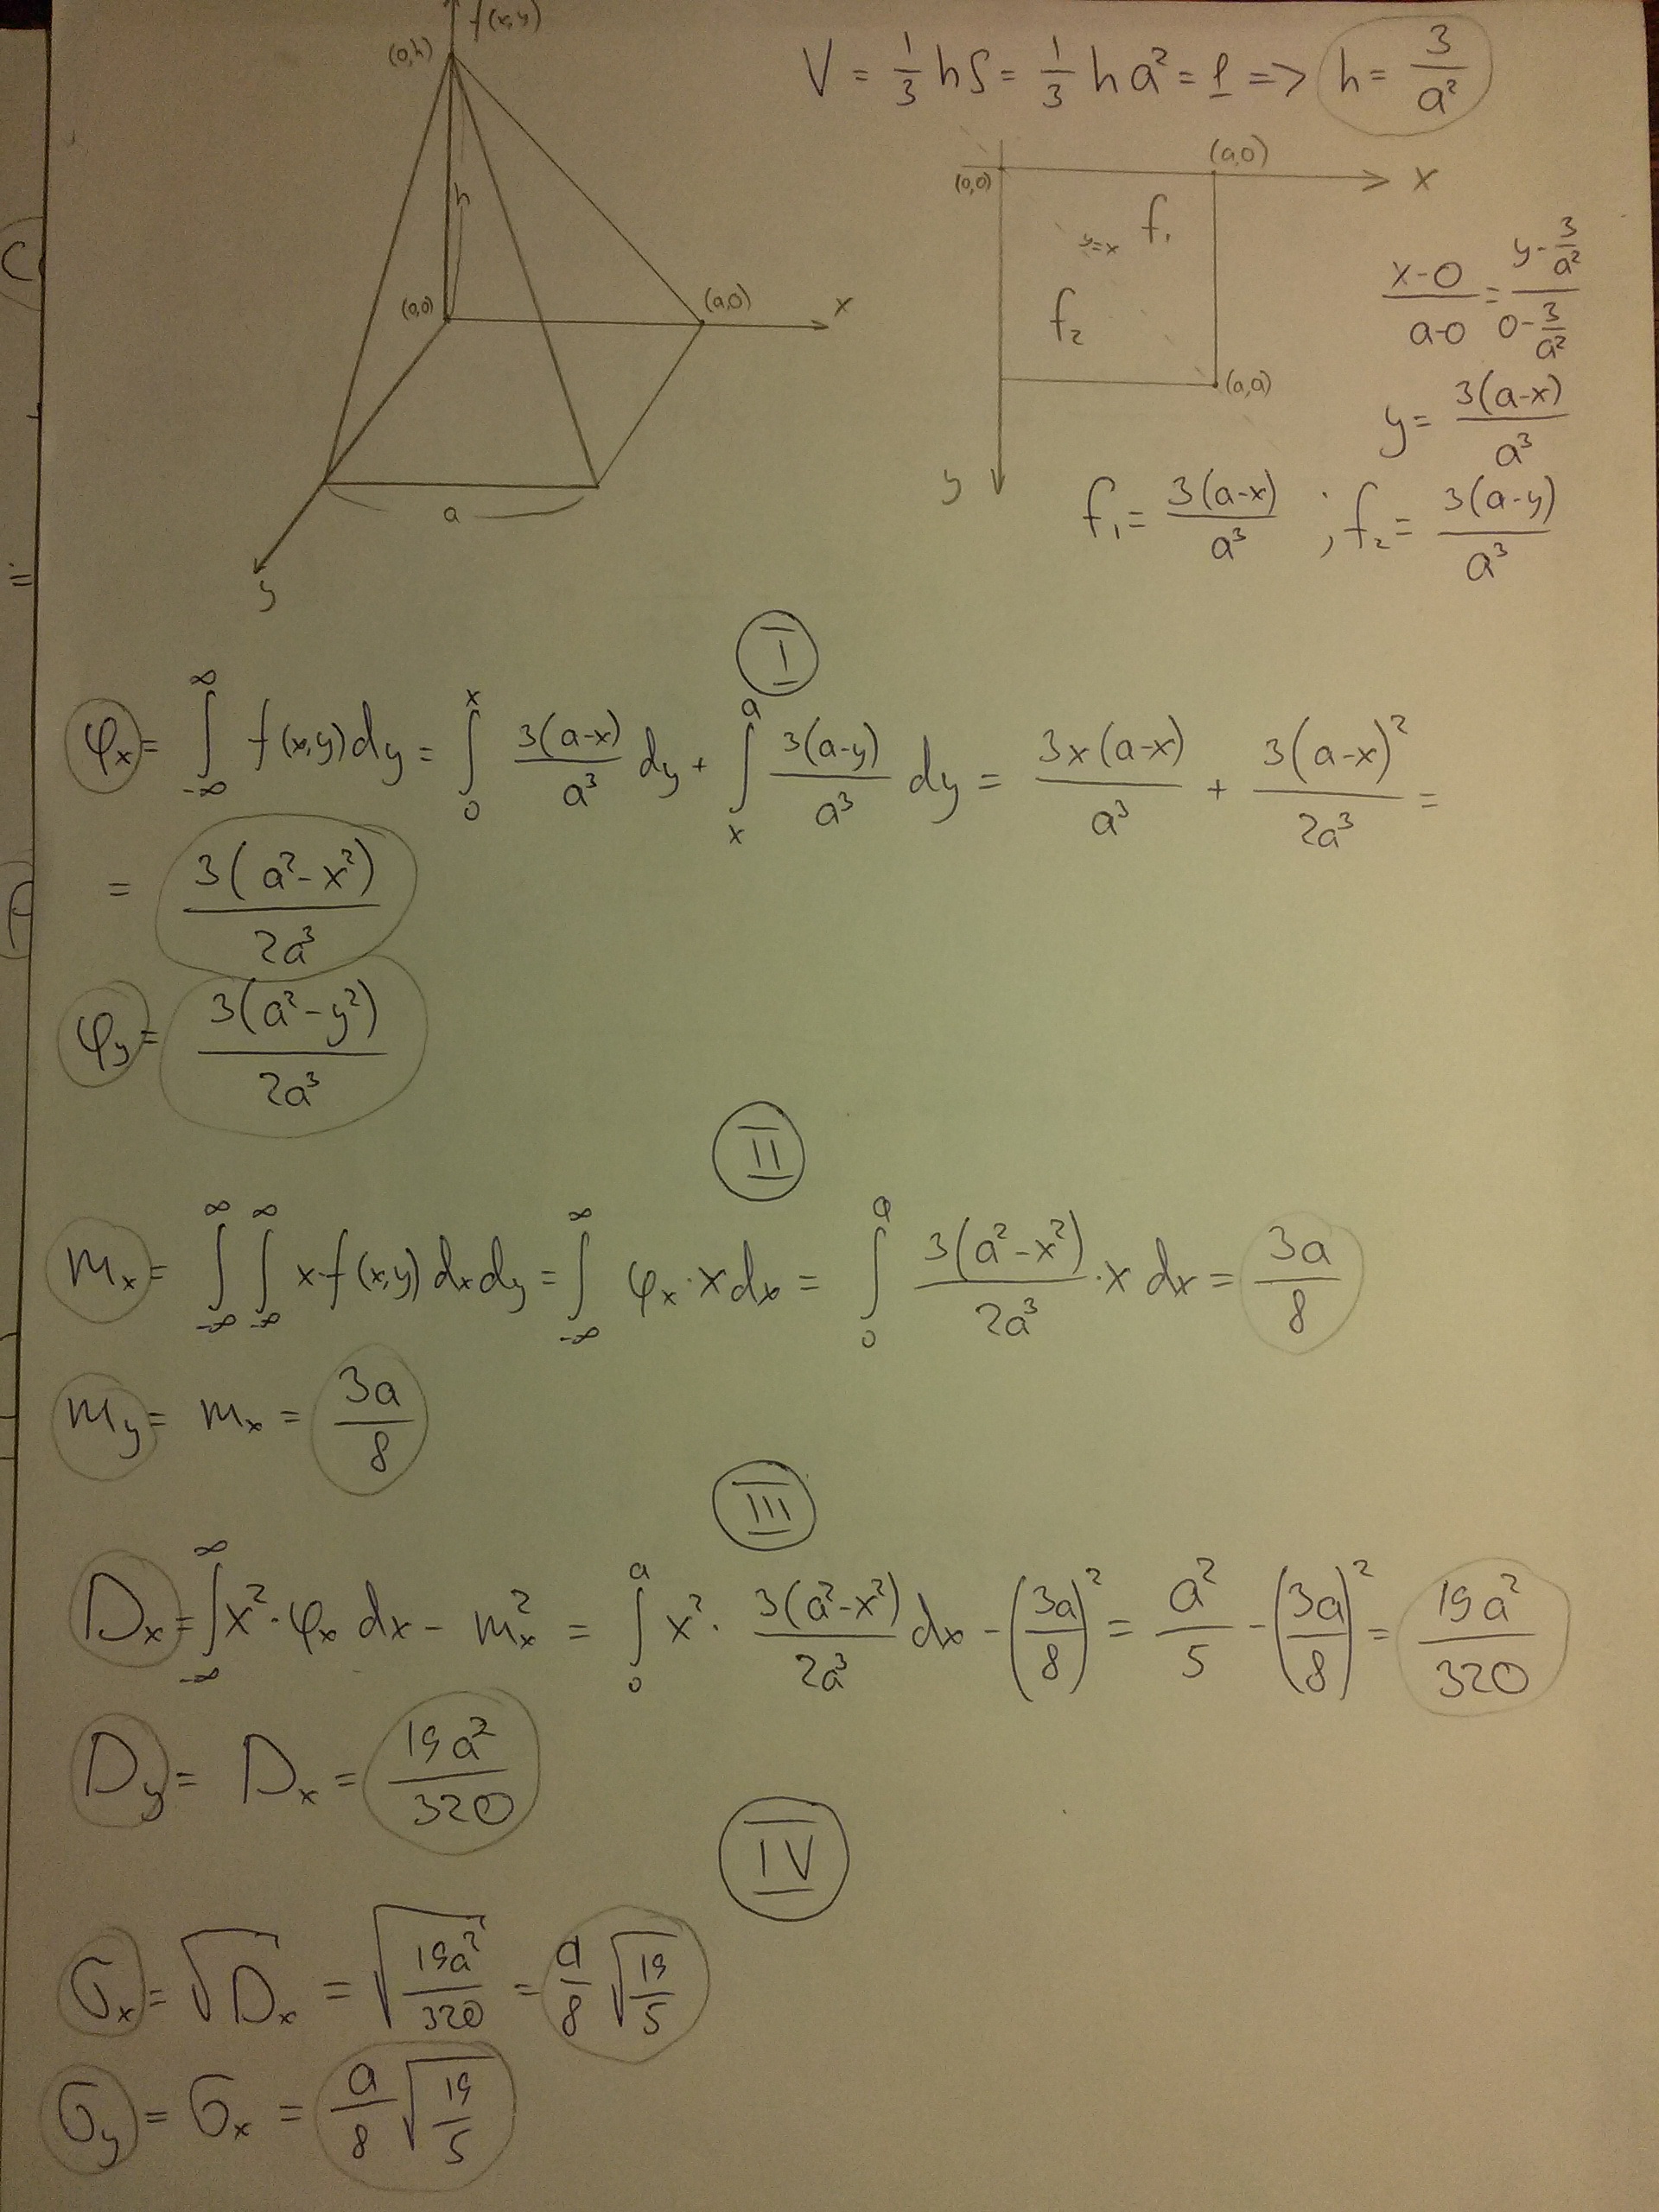 f(x,y)
(0,h)
V = 1/3 hS = 1/3 ha² = 1 => h = 3/a²
h
(0,0)
(a,0)
x
a
y
(0,0)
(a,0)
x
y=x
f₁
f₂
(a,a)
y
(x-0)/(a-0) = (y - 3/a²)/(0 - 3/a²)
y = 3(a-x)/a³
f₁ = 3(a-x)/a³ ; f₂ = 3(a-y)/a³
I
φₓ = ∫_{-∞}^{∞} f(x,y)dy = ∫_{0}^{x} 3(a-x)/a³ dy + ∫_{x}^{a} 3(a-y)/a³ dy = 3x(a-x)/a³ + 3(a-x)²/2a³ =
= 3(a²-x²)/2a³
φ_y = 3(a²-y²)/2a³
II
mₓ = ∫_{-∞}^{∞} ∫_{-∞}^{∞} x·f(x,y)dxdy = ∫_{-∞}^{∞} φₓ·x dx = ∫_{0}^{a} 3(a²-x²)/2a³ · x dx = 3a/8
m_y = mₓ = 3a/8
III
Dₓ = ∫_{-∞}^{∞} x²·φₓ dx - mₓ² = ∫_{0}^{a} x² · 3(a²-x²)/2a³ dx - (3a/8)² = a²/5 - (3a/8)² = 19a²/320
D_y = Dₓ = 19a²/320
IV
σₓ = √Dₓ = √(19a²/320) = a/8 √(19/5)
σ_y = σₓ = a/8 √(19/5)